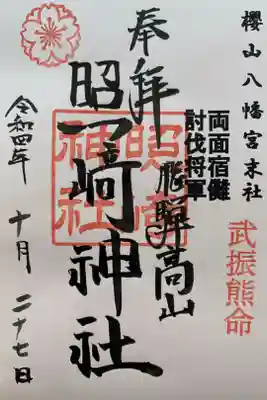 櫻山八幡宮末社
両面宿儺
討伐将軍
武振熊命
奉拜
飛驒高山
昭﨑神社
照﨑神社
令和四年 十月 二十七日